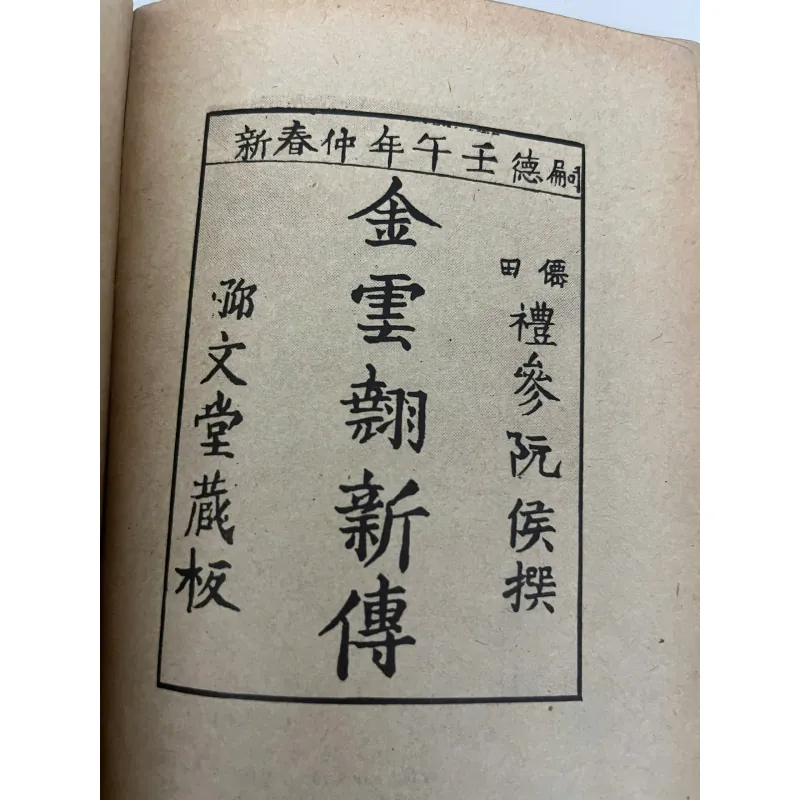 嗣德壬午年仲春新
僊田
禮參阮侯撰
金雲翹新傳
文堂藏板